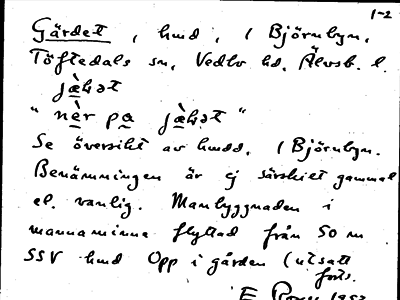 1-2
Gärdet, hmd, i Björnbyn,
Töftedals sn, Vedbo hd. Älvsb. l.
jæ̀ʟət
"nèr pa jæ̀ʟət"
Se översikt av hmdd. i Björnbyn.
Benämningen är ej särskilt gammal
el. vanlig. Manbyggnaden i
mannaminne flyttad från 50 m
SSV hmd Opp i gården (utsatt
forts.
E.